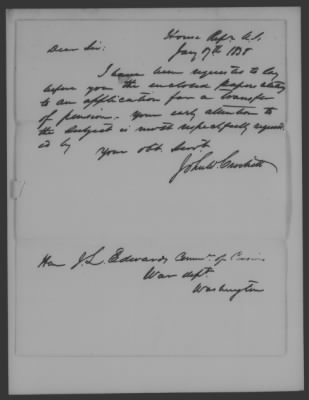 House Reps U.S.
Jany 17th 1838
Dear Sir:
I have been requested to lay
before you the enclosed papers relating
to an application for a transfer
of pension. Your early attention to
the subject is most respectfully request-
ed by
Your obt. Servt.
John W Crockett
Hon J. L. Edwards Commr. of Pensions
War dept.
Washington